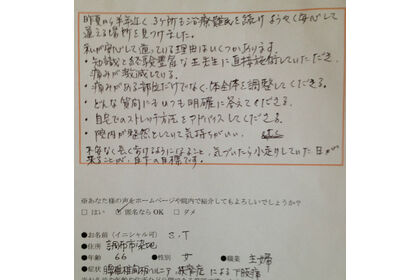 昨夏から半年近く3ケ所も治療難民を続けようやく安心して
通える場所を見つけました。
私が安心して通っている理由はいくつかあります。
・知識と経験豊富な 先生に直接施術していただき、
痛みが激減している。
・痛みがある部位だけでなく、体全体を調整してくださる。
・どんな質問にもいつも明確に答えてくださる。
・自宅でのストレッチ方法をアドバイスしてくださる。
・院内が整然としていて気持ちがいい。
不安なく歩けるようになること、気づいたら小走りしていた日が
来ることが、目下の目標です。
※あなた様の声をホームページや院内で紹介してもよろしいでしょうか？
□はい ☑匿名ならOK □ダメ
●お名前(イニシャル可) S.T
●住所 調布市深大寺
●年齢 66 ●性別 女 ●職業 主婦
●症状 腰椎椎間板ヘルニア、狭窄症による下肢痛